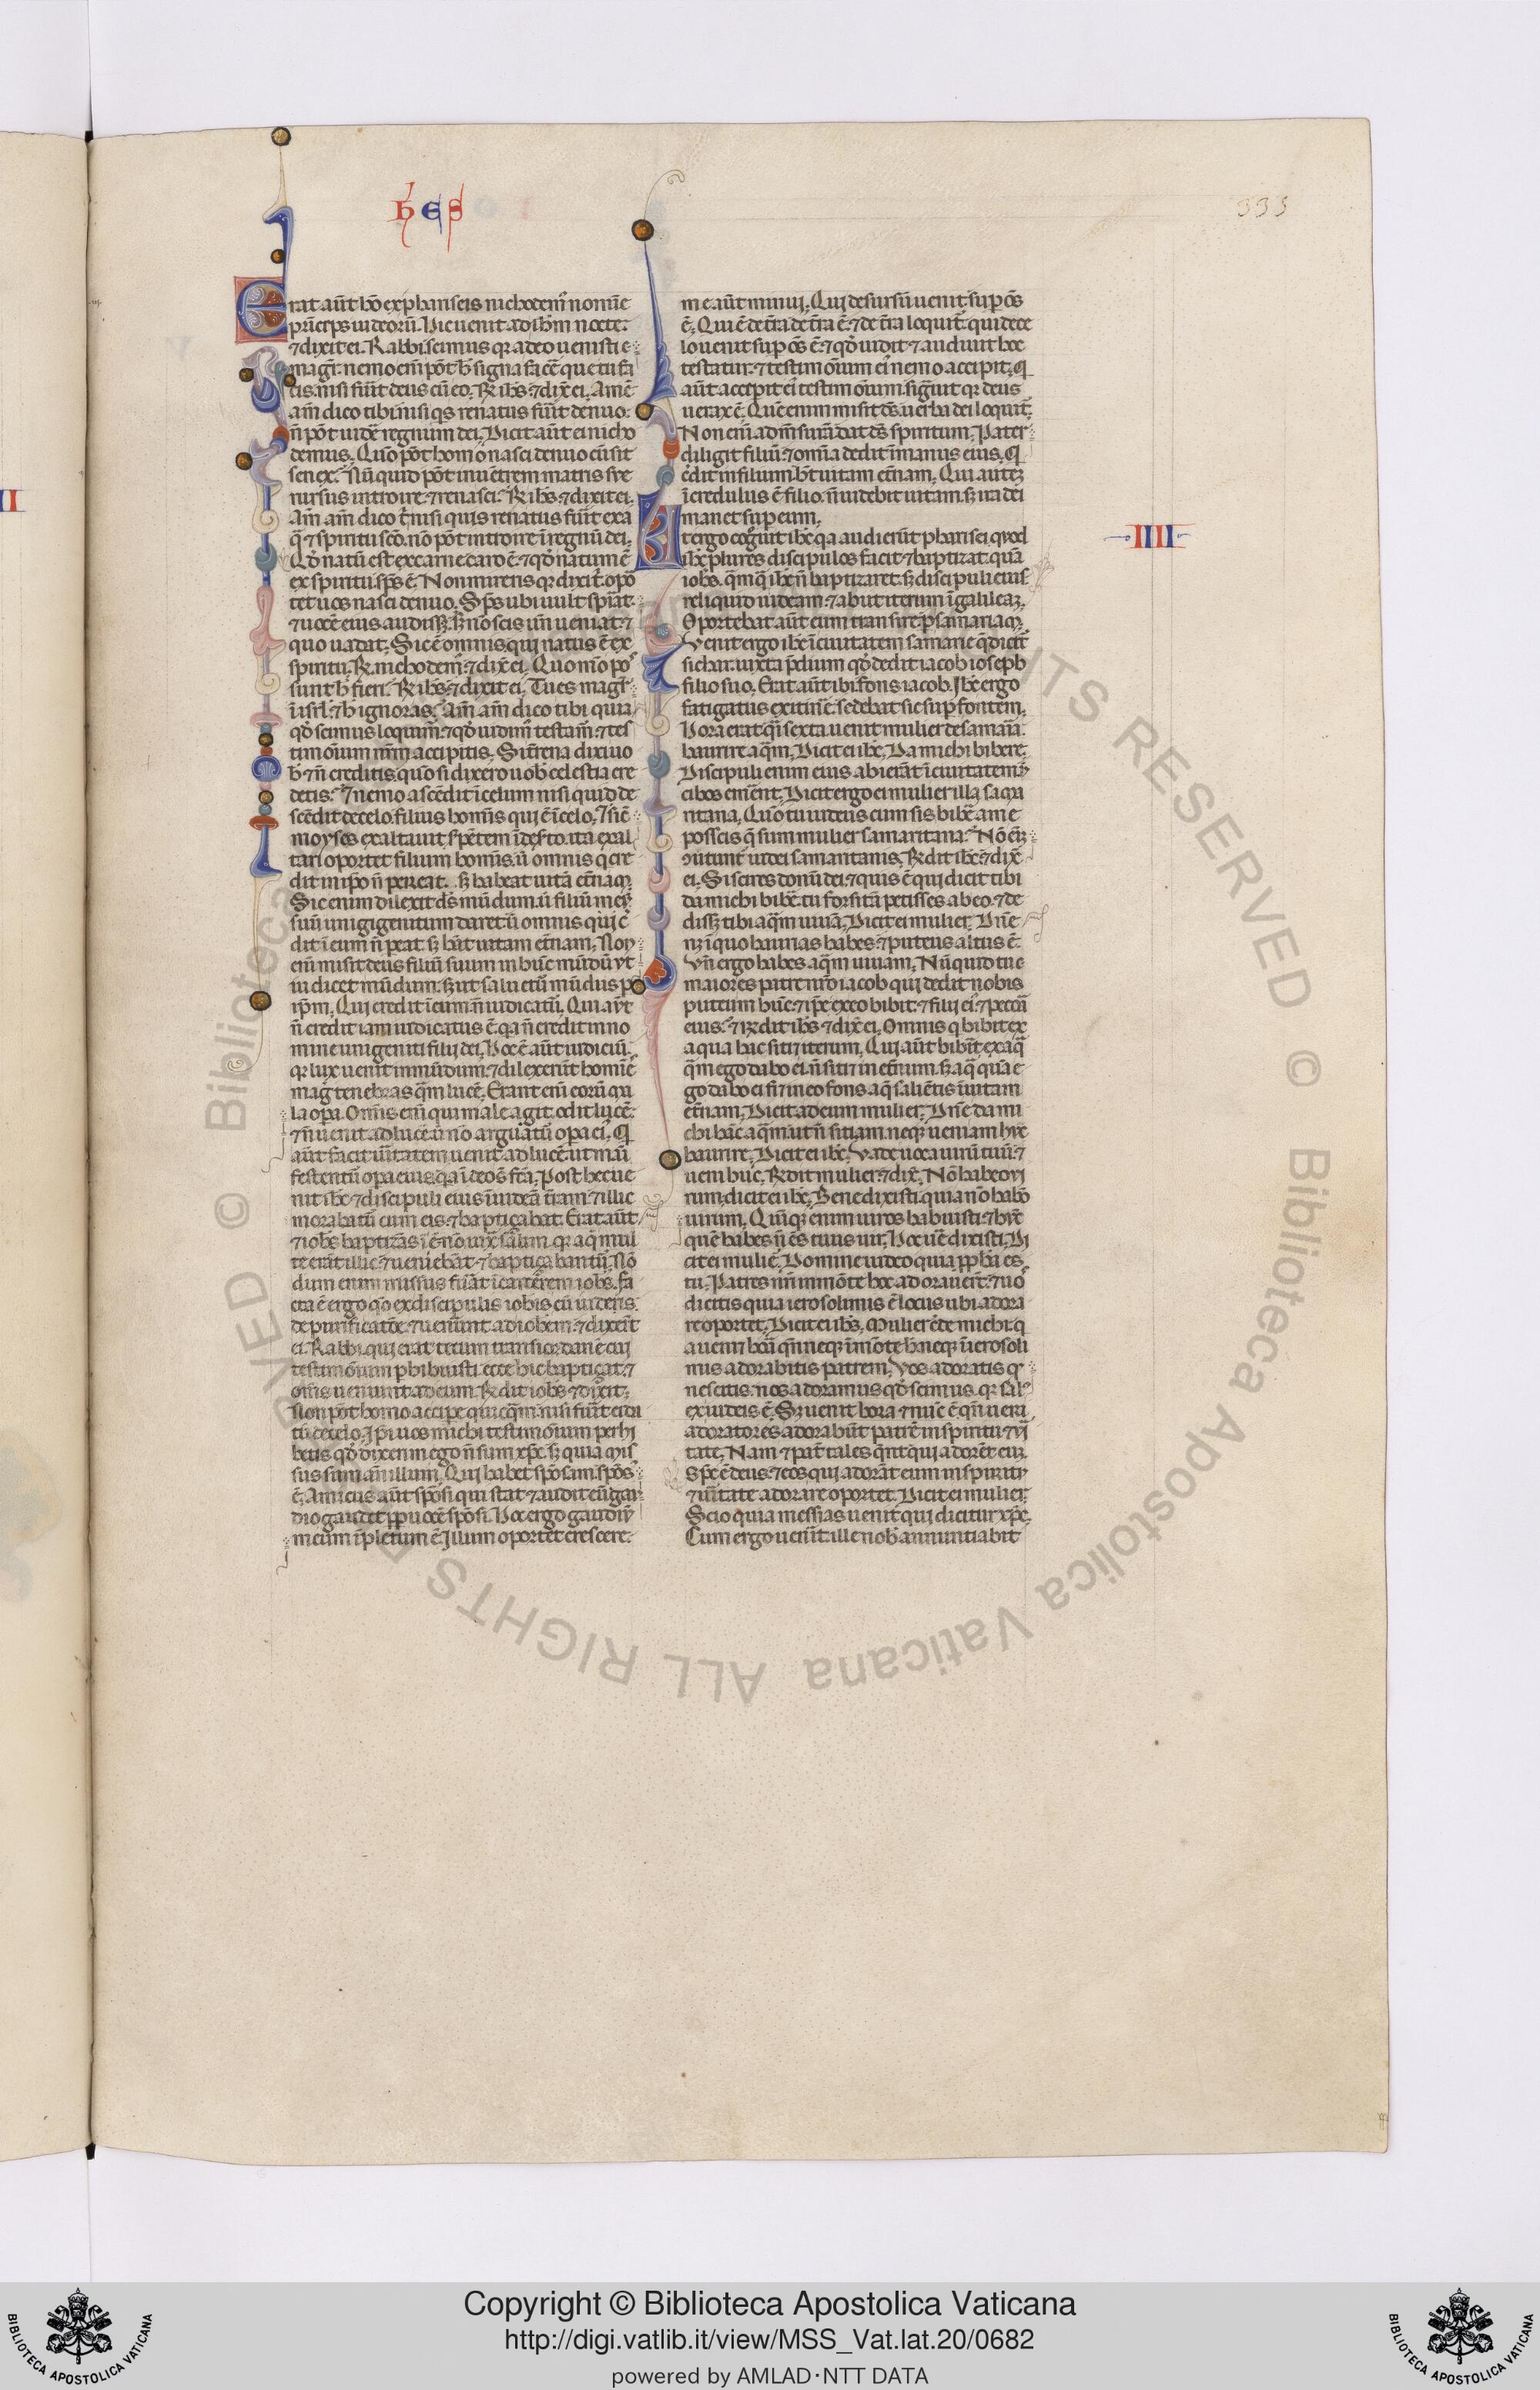 hes
333
Erat aūt hō ex phariseis nichodem' nomīe
prīceps iudeorū. Hic uenit ad ihm nocte.
⁊ dixit ei. Rabbi. scimus qr a deo uenisti e
magr̄. nemo em̄ pōt h̄ signa facē que tu fa
cis. nisi fuīt deus cū eo. R̄ ihs. ⁊ dix̄ ei. Amē
am̄ dico tibi nisi qs renatus fuīt denuo.
n̄ pōt uidē regnum dei. Dicit aūt ei nicho
demus. Quō pōt homo nasci denuo cū sit
senex. Nūquid pōt in uētrem matris sue
rursus introire. ⁊ renasci. R̄ ihs. ⁊ dixit ei.
Am̄ am̄ dico t̄ nisi quis renatus fuīt ex a
q̄ ⁊ spiritu sco. nō pōt introire ī regnū dei.
Qd̄ natū est ex carne caro ē. ⁊ qd̄ natum ē
ex spiritu sps ē. Non mireris qr dixi t̄. opō
tet uos nasci denuo. Sps ubi uult spirat.
⁊ uocē eius audis. sꝫ nō scis un̄ ueniat ⁊
quo uadat. Sic ē omnis qui natus ē ex
spiritu. R̄. nichodem'. ⁊ dix̄ ei. Quomō pos
sunt h̄ fieri. R̄ ihs. ⁊ dixit ei. Tu es magr̄
ī isrl̄. ⁊ h̄ ignoras. Am̄ am̄ dico tibi quia
qd̄ scimus loquim'. ⁊ qd̄ uidim' testam'. ⁊ tes
timonium nr̄m n̄ accipitis. Si t̄rena dixi uo
b̄ ⁊ n̄ creditis. quō si dixero uob̄ celestia cre
detis. ⁊ nemo ascēdit ī celum nisi qui de
scēdit de celo. filius homīs qui ē ī celo. ⁊ sic̄
moyses exaltauit spētem ī deserto. ita exal
tari oportet filium homīs. ut omnis q̄ cre
dit in ipō n̄ pereat. sꝫ habeat uitā et̄nam.
Sic enim dilexit ds mūdum. ut filiū
suū unigigenitum daret. ut omnis qui cre
dit ī eum n̄ peat. sꝫ hāt uitam et̄nam. Non
em̄ misit deus filiū suum in hūc mūdū ut
iudicet mūdum. sꝫ ut saluetur mūdus p
ipm̄. Qui credit ī eum n̄ iudicatur. Qui aūt
n̄ credit iam iudicatus ē. qa n̄ credit in no
mine unigeniti filij dei. Hoc ē aūt iudiciū.
qr lux uenit in mūdum. ⁊ dilexerūt homīes
mag' tenebras q̄m lucē. Erant em̄ eorū ma
la opa. Omīs em̄ qui male agit. odit lucē.
⁊ n̄ uenit ad lucē. ut nō arguātur opa ei'. Q
aūt facit ūitatem uenit ad lucē. ut mani
festentur opa eius. qa ī deo st̄ fc̄a. Post hec ue
nit ihc̄ ⁊ discipuli eius ī iudeā t̄ram. ⁊ illic
morabatur cum eis. ⁊ baptiçabat. Erat aūt
⁊ iohs baptizās ī ēnō iuxᵃ salim. qr aq̄ mul
te erāt illic. ⁊ ueniebāt ⁊ baptiçabantur. Nō
dum enim missus fuāt ī carcērem iohs. fa
cta ē ergo qō ex discipulis iohis cū iudeis.
de purificatōe. ⁊ uenerunt ad iohem. ⁊ dixert̄
ei. Rabbi. qui erat tecum trans iordanē cui
testimonium phibuisti. ecce hic baptiçat. ⁊
omīs ueniunt ad eum. R̄dit iohs. ⁊ dixit.
Non pōt homo accipe quicq̄m. nisi fuīt ei da
tū de celo. Ipi uos michi testimonium perhi
betis qd̄ dixerim ego n̄ sum xpc. sꝫ quia mis
sus sum an̄ illum. Qui habet spōsam. spōs'
ē. Amicus aūt spōsi qui stat ⁊ audit eū. gau
dio gaudet pp uocē spōsi. Hoc ergo gaudiū
meum īpletum ē. Illum oportet crescere.
me aūt minui. Qui desursū uenit. sup oēs
ē. Qui ē de t̄ra de t̄ra ē. ⁊ de t̄ra loquit̄. qui de ce
lo uenit sup oēs ē. ⁊ qd̄ uidit ⁊ audiuit hoc
testatur. ⁊ testimonium ei' nemo accipit. Q
aūt accipit ei' testimonium. signauit qr deus
uerax ē. Quē enim misit ds. uerba dei loquit̄.
Non em̄ ad msurā dat ds spiritum. Pater
diligit filiū. ⁊ omīa dedit ī manus eius. Q
c̄dit in filium h̄t uitam et̄nam. Qui autez
īcredulus ē filio. n̄ uidebit uitam. sꝫ ira dei
manet sup eum.
IIII
Ut ergo cognouit ihc̄ qa audierūt pharisei quod
ihc̄ plures discipulos facit ⁊ baptizat. quā
iohs. q̄mq̄ ihc̄ n̄ baptizaret. sꝫ discipuli eius
reliquid iudeam. ⁊ abiit iterum ī galileaꝫ.
Oportebat aūt eum transire p samariaꝫ.
Venit ergo ihc̄ ī ciuitatem samarie q̄ dicit̄
sichar. iuxta p̄dium qd̄ dedit iacob ioseph
filio suo. Erat aūt ibi fons iacob. Ihc̄ ergo
fatigatus ex itin̄e sedebat sic sup fontem.
Hora erat q̄si sexta. uenit mulier de samaria
haurire aq̄m. Dicit ei ihc̄. Da michi bibere.
Discipuli enim eius abierāt ī ciuitatem ut
cibos emēnt. Dicit ergo ei mulier illa sama
ritana. Quō tu iudeus cum sis bibē a me
poscis q̄ sum mulier samaritana. Nō em̄
utuntur iudei samaritanis. R̄dit ihc̄. ⁊ dix̄
ei. Si scires donū dei. ⁊ quis ē qui dicit tibi
da michi bibē. tu forsitā petisses ab eo. ⁊ de
disset tibi aq̄m uiuā. Dicit ei mulier. Dn̄e
nꝫ ī quo haurias habes. ⁊ puteus altus ē.
Vn̄ ergo habes aq̄m uiuam. Nūquid tu e
maiores patre nro iacob qui dedit nobis
puteum hūc. ⁊ ipe ex eo bibit. ⁊ filij ei'. ⁊ pecora
eius. R̄dit ihs ⁊ dix̄ ei. Omnis q̄ bibit ex
aqua hac sitiet iterum. Qui aūt bibīt ex aq̄
q̄m ego dabo ei. n̄ sitiet in et̄num. sꝫ aq̄ quā e
go dabo ei fiet in eo fons. aq̄ saliētis ī uitam
et̄nam. Dicit ad eum mulier. Dn̄e da mi
chi hāc aq̄m. ut n̄ sitiam. neqꝫ ueniam huc
haurire. Dicit ei ihc̄. Vade uoca uirū tuū. ⁊
ueni huc. R̄dit mulier. ⁊ dix̄. Nō habeo ui
rum. dicit ei ihc̄. Bene dixisti. quia nō habeo
uirum. Quīqꝫ enim uiros habuisti. ⁊ hūc
quē habes n̄ ē tuus uir. Hoc ue' dixisti. Di
cit ei mulie'. Domine uideo quia ppha es
tu. Patres nri in mōte hoc adorauert̄. ⁊ uos
dicitis quia ierosolimis ē locus ubi adora
re oportet. Dicit ei ihs. Mulier c̄de michi. q
a ueniet hora qn̄ neqꝫ ī mōte h̄ neqꝫ ī ierosoli
mis adorabitis patrem. Vos adoratis qd
nescitis. nos adoramus qd̄ scimus. qr sal'
ex iudeis ē. Sꝫ uenit hora ⁊ nūc ē. qn̄ ueri
adoratores adorabūt patrē in spiritu ⁊ ūi
tate. Nam ⁊ pat̄ tales q̄rit qui adorēt euꝫ.
Spc ē deus. ⁊ eos qui adorāt eum in spiritu
⁊ ūitate adorare oportet. Dicit ei mulier.
Scio quia messias uenit qui dicitur xpc.
Cum ergo uenīt. ille nob̄ annuntiabit
Copyright © Biblioteca Apostolica Vaticana
http://digi.vatlib.it/view/MSS_Vat.lat.20/0682
powered by AMLAD·NTT DATA